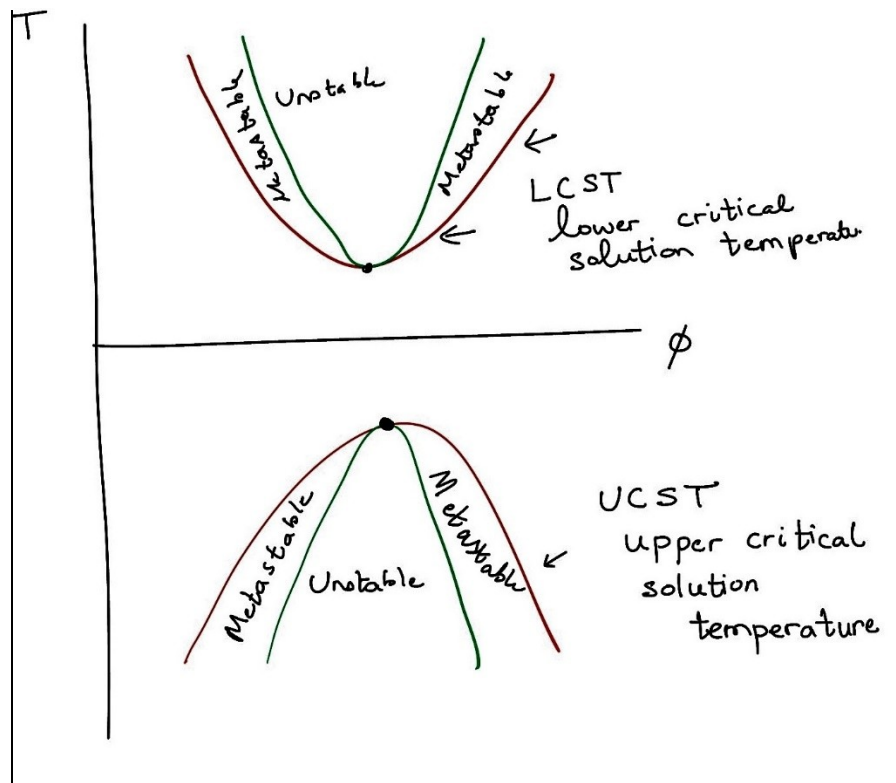 T
Metastable
Unstable
Metastable
LCST
lower critical
solution temperatu
ϕ
Metastable
Unstable
Metastable
UCST
upper critical
solution
temperature